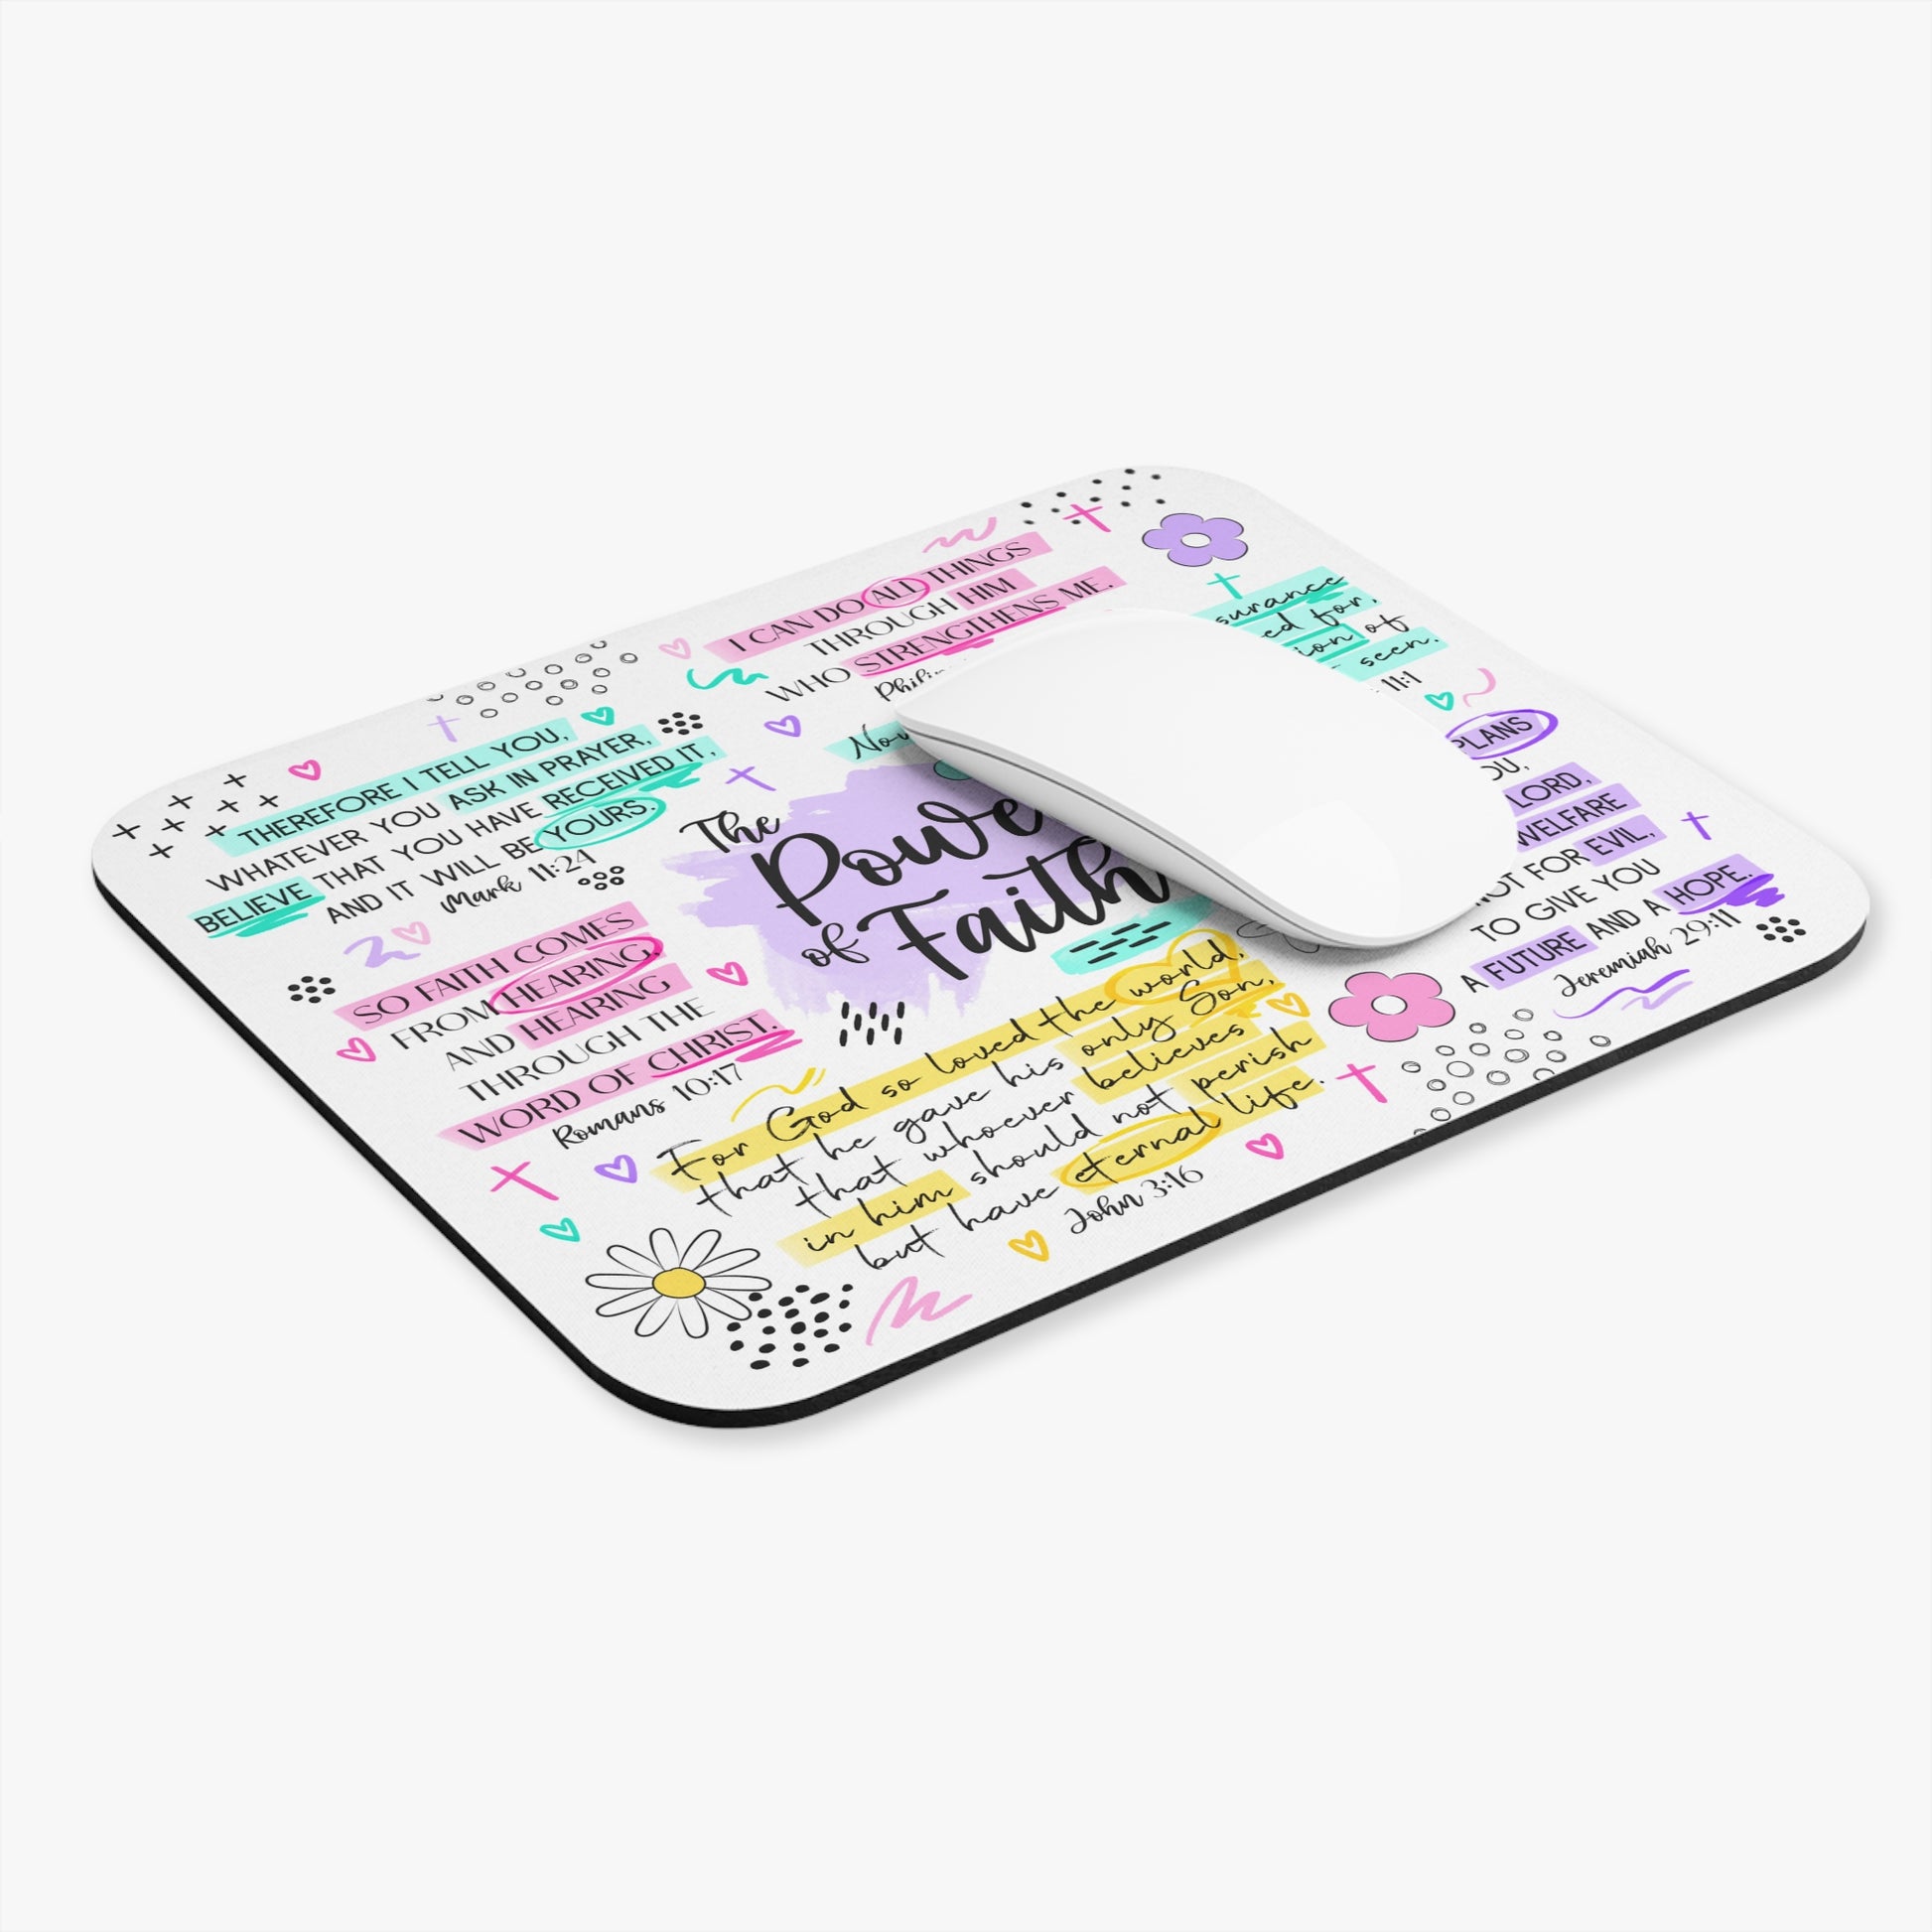 I CAN DO ALL THINGS
THROUGH HIM
WHO STRENGTHENS ME.
THEREFORE I TELL YOU,
WHATEVER YOU ASK IN PRAYER,
BELIEVE THAT YOU HAVE RECEIVED IT,
AND IT WILL BE YOURS.
Mark 11:24
The
Powe
of Faith
SO FAITH COMES
FROM HEARING,
AND HEARING
THROUGH THE
WORD OF CHRIST.
Romans 10:17
For God so loved the world,
that he gave his only Son,
that whoever believes
in him should not perish
but have eternal life.
John 3:16
ed for,
of
seen.
11:1
PLANS
LORD,
WELFARE
NOT FOR EVIL,
TO GIVE YOU
A FUTURE AND A HOPE.
Jeremiah 29:11